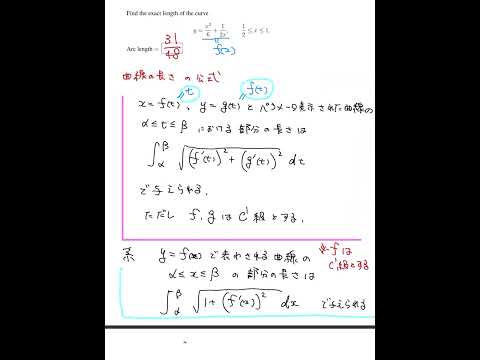 Find the exact length of the curve
y = x³/6 + 1/(2x) 1/2 ≤ x ≤ 1.
f(x)
Arc length = 31/48
曲線の長さ の公式
t f(t)
x = f(t)、 y = g(t) と パラメータ表示された曲線の
α ≤ t ≤ β における 部分の長さは
∫_α^β √((f'(t))² + (g'(t))²) dt
で与えられる.
ただし f, g は C¹級とする.
系 y = f(x) で表わされる曲線の ※ fは
α ≤ x ≤ β の部分の長さは C¹級とする
∫_α^β √(1 + (f'(x))²) dx で与えられる